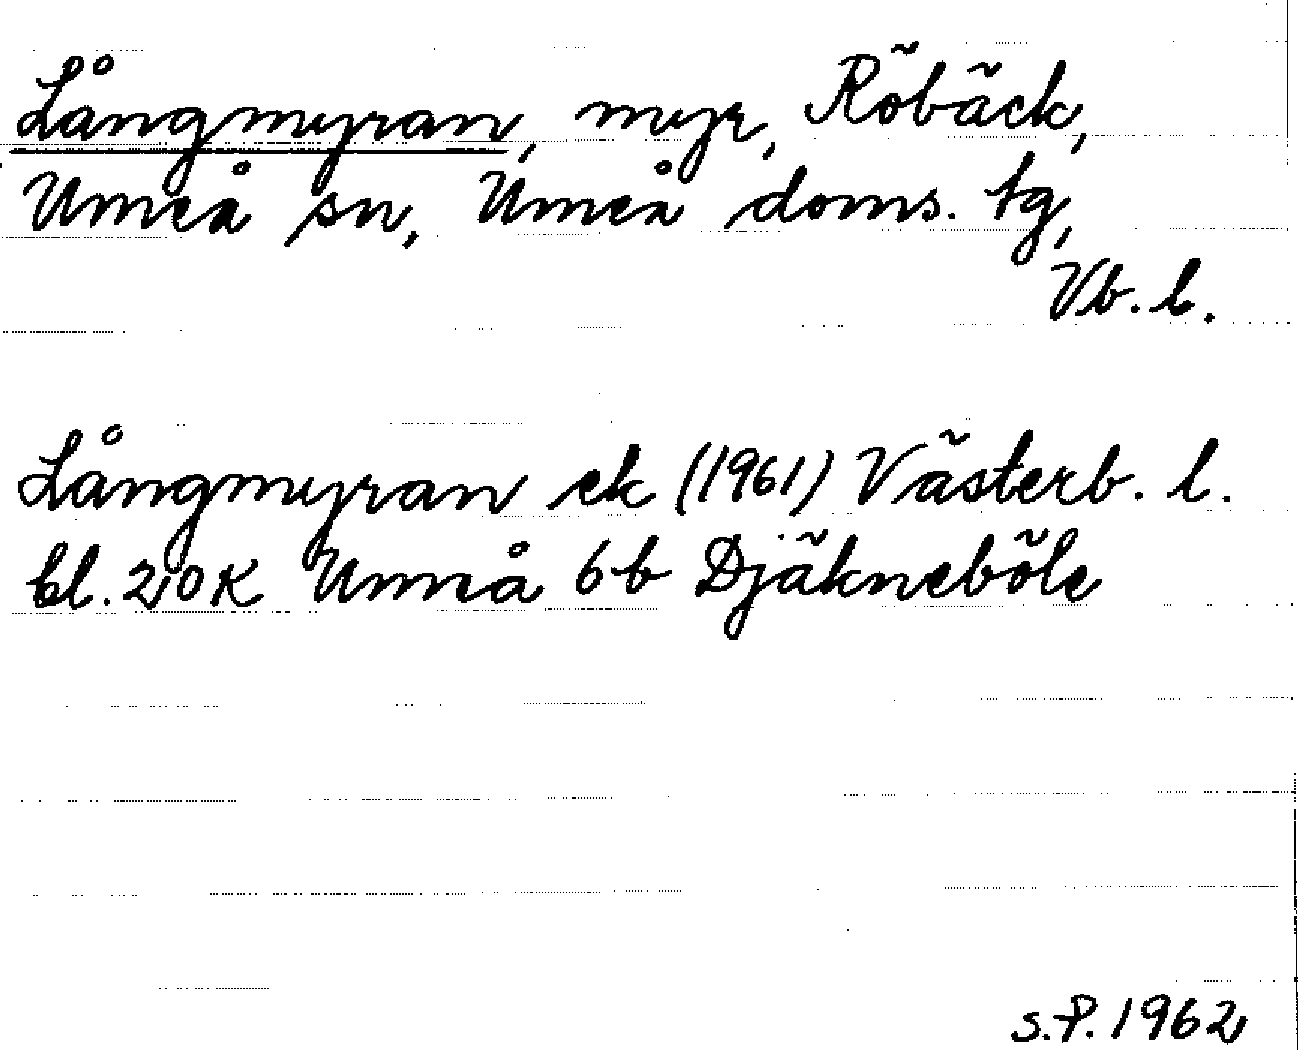 Långmyran, myr, Röbäck,
Umeå sn, Umeå doms. tg,
Vb. l.
Långmyran ek (1961) Västerb. l.
bl. 20K Umeå 6b Djäkneböle
S.P. 1962